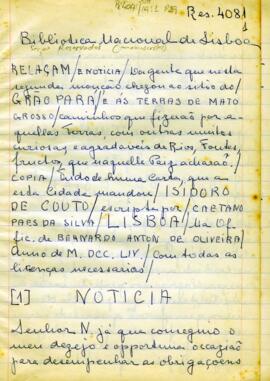 Res. 4081
1
Biblioteca Nacional de Lisboa
Reservados (manuscritos)
RELAÇAM / E NOTICIA / Da gente que nesta
segunda monção chegou ao sitio do /
GRÃO PARÁ / E ÁS TERRAS DE MATO
GROSSO / caminhos que fizerão por a-
quellas Terras, com outras muitas
curiosas, e agradaveis de Rios, Fontes,
fructos, que naquelle Paiz acharão. /
COPIA / Tudo de huma Carta, que a
esta Cidade mandou / ISIDORO
DE COUTO / escripta por / CAETANO
PAES DA SILVA / LISBOA / Na Of-
fic. de BERNARDO ANTON. DE OLIVEIRA /
Anno de M. DCC. LIV. / Com todas as
licenças necessarias /
[1] NOTICIA
Senhor N. já que conseguio o
meu dezejo a opportuna occazião
para desempenhar as obrigaçoens